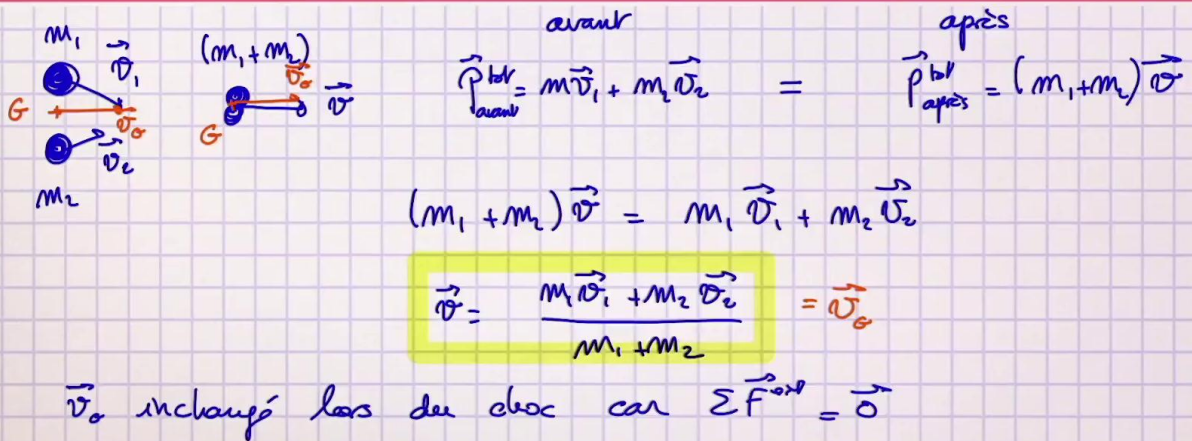 avant après
m₁ v⃗₁ (m₁+m₂) v⃗_G v⃗
G v⃗_G v⃗₂ G
m₂
P⃗ᵗᵒᵗ_avant = mv⃗₁ + m₂v⃗₂ = P⃗ᵗᵒᵗ_après = (m₁+m₂)v⃗
(m₁+m₂)v⃗ = m₁v⃗₁ + m₂v⃗₂
v⃗ = (m₁v⃗₁ + m₂v⃗₂) / (m₁+m₂) = v⃗_G
v⃗_G inchangé lors du choc car ΣF⃗ᵉˣᵗ = 0⃗